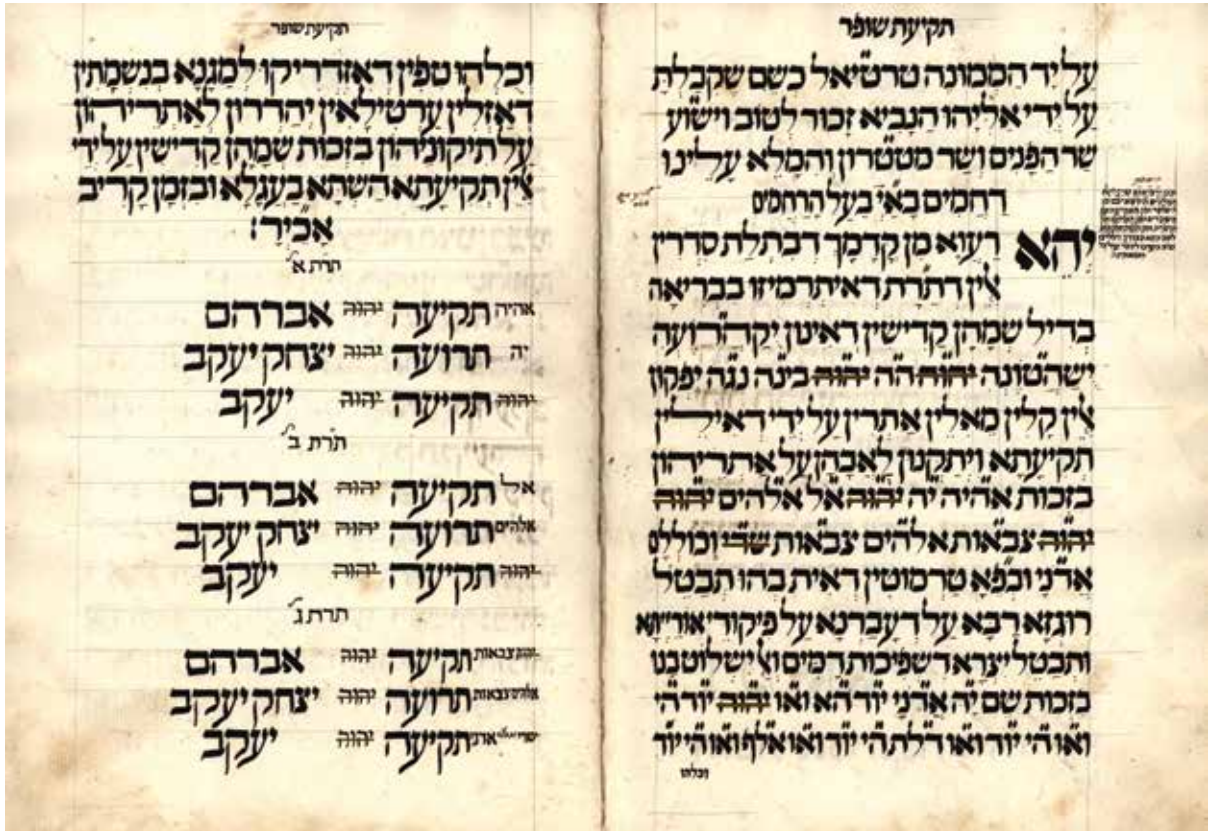 תקיעת שופר
עַל יַד הַמְמוּנֶה טרטיאל כשם שקבלת
עַל יְדֵי אֵלִיָהוּ הַנָבִיא זָכוּר לַטוֹב וישוע
שר הפנים ושר מטטרון והמלא עָלֵינוּ
רחמים בא״י בעל הרחמים
יְהֵא רַעֲוָא מִן קֳדָמָךְ דבתלת סדרין
אִלֵין דתר״ת דאיתרמיזו בבריאה
בדיל שמהן קדישין דאינון
יהוה יהוה בינה נגה יפקון
אִלֵין קָלִין מאלין אתרין על ידי דאילין
תקיעתא ויתקנון על אתריהון
בזכות אהיה יה יהוה אל אלהים יהוה
יהוה צבאות אלהים צבאות שדי
אדני דאית בהו תבטל
רוגזא רבא על דעברנא על פיקודי אורייתא
ותבטל יצרא דשפיכות דמים
בזכות שם יה אדני יוד הא ואו יהוה יוד הי
ואו הי יוד ואו דלת הי יוד ואו אלף ואו הי יוד
וכלהו
תקיעת שופר
וכלהו טפין דאזדריקו למגנא בנשמתין
דאזלין ערטילאין יהדרון לאתריהון
על תיקוניהון בזכות שמהן קדישין על ידי
אלין תקיעתא השתא בעגלא ובזמן קריב
אכי״ר:
תרת א׳
אהיה תקיעה יהוה אברהם
יה תרועה יהוה יצחק יעקב
יהוה תקיעה יהוה יעקב
תרת ב׳
אל תקיעה יהוה אברהם
אלהים תרועה יהוה יצחק יעקב
יהוה תקיעה יהוה יעקב
תרת ג׳
יהוה צבאות תקיעה יהוה אברהם
אלהים צבאות תרועה יהוה יצחק יעקב
שדי אדני תקיעה יהוה יעקב